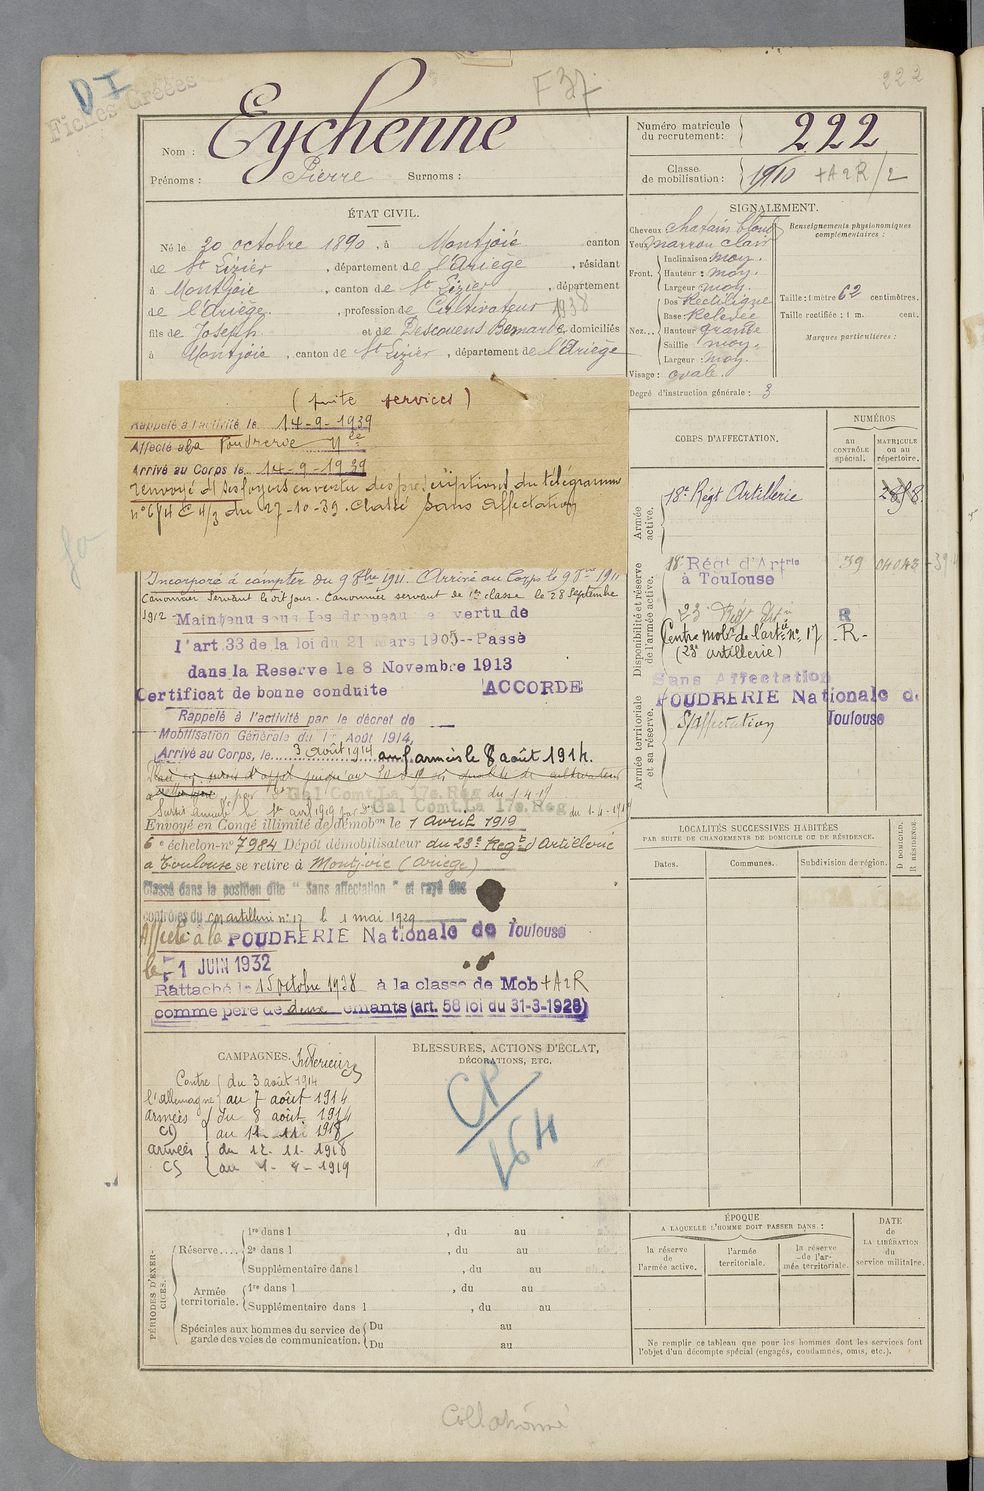 D I
Fiches Créées
F 37
222
Nom : Eychenne
Prénoms : Pierre Surnoms :
Numéro matricule du recrutement : 222
Classe de mobilisation : 1910 + A2R/2
ÉTAT CIVIL.
Né le 20 octobre 1890, à Montjoie canton
de St Lizier, département de l'Ariège, résidant
à Montjoie, canton de St Lizier, département
de l'Ariège, profession de Cultivateur 1938
fils de Joseph et de Descouens Bernarde, domiciliés
à Montjoie, canton de St Lizier, département de l'Ariège
SIGNALEMENT.
Cheveux chatain blond
Yeux marron clair
Front. Inclinaison moy.
Hauteur : moy.
Largeur moy.
Nez... Dos Rectiligne
Base : Relevée
Hauteur grande
Saillie moy.
Largeur : moy.
Visage : ovale.
Degré d'instruction générale : 3
Renseignements physionomiques complémentaires :
Taille : 1 mètre 62 centimètres.
Taille rectifiée : 1 m. cent.
Marques particulières :
(suite services)
Rappelé à l'activité le 14-9-1939
Affecté à la Poudrerie
Arrivé au Corps le 14-9-1939
renvoyé ds ses foyers en vertu des prescriptions du télégramme
du 27-10-39. Classé sans affectation
Incorporé à compter du 9 8bre 1911. Arrivé au Corps le 9 8bre 1911
Canonnier servant le dit jour. Canonnier servant de 1re classe le 28 septembre
1912 Maintenu sous les drapeaux en vertu de
l'art. 33 de la loi du 21 Mars 1905 -- Passé
dans la Reserve le 8 Novembre 1913
Certificat de bonne conduite ACCORDÉ
Rappelé à l'activité par le décret de
Mobilisation Générale du 1er Août 1914,
Arrivé au Corps, le 3 août 1914 aux armées le 8 août 1914.
Gal Comt. La 17e. Reg du 1-4-19
Gal Comt. La 17e. Reg
Envoyé en Congé illimité de démobon le 1 Avril 1919
6e échelon-no 7984 Dépôt démobilisateur du 23e Régt d'Artillerie
à Toulouse se retire à Montjoie (Ariège)
Classé dans la position dite "Sans affectation" et rayé des
contrôles du cm artillerie no 17 le 1 mai 1929
Affecté à la POUDRERIE Nationale de Toulouse
le 1 JUIN 1932
Rattaché le 15 octobre 1938 à la classe de Mob + A2R
comme père de deux enfants (art. 58 loi du 31-3-1928)
CORPS D'AFFECTATION.
NUMÉROS
au contrôle spécial.
matricule ou au répertoire.
Armée active.
18e Régt Artillerie
Disponibilité et réserve de l'armée active.
18e Régt d'Artrie à Toulouse 39
23e Régt Art
R
Centre mobre de l'artie no 17 -R-
(23e artillerie)
Armée territoriale et sa réserve.
Sans Affectation
POUDRERIE Nationale de Toulouse
S/affectation
LOCALITÉS SUCCESSIVES HABITÉES
PAR SUITE DE CHANGEMENTS DE DOMICILE OU DE RÉSIDENCE.
Dates. Communes. Subdivision de région. D DOMICILE. R RÉSIDENCE.
CAMPAGNES.
Intérieur CS
Contre l'Allemagne
du 3 août 1914
au 7 août 1914
armées CD
du 8 août 1914
au 11 - 11 1918
armées CS
du 12. 11. 1918
au 1 - 4 - 1919
BLESSURES, ACTIONS D'ÉCLAT,
DÉCORATIONS, ETC.
CP/
PÉRIODES D'EXERCICES.
Réserve.... 1re dans l , du au
2e dans l , du au
Supplémentaire dans l , du au
Armée territoriale. 1re dans l , du au
Supplémentaire dans l , du au
Spéciales aux hommes du service de garde des voies de communication. Du au
Du au
ÉPOQUE
A LAQUELLE L'HOMME DOIT PASSER DANS :
la réserve de l'armée active.
l'armée territoriale.
la réserve de l'armée territoriale.
DATE de LA LIBÉRATION du service militaire.
Ne remplir ce tableau que pour les hommes dont les services font
l'objet d'un décompte spécial (engagés, condamnés, omis, etc.).
Collationné